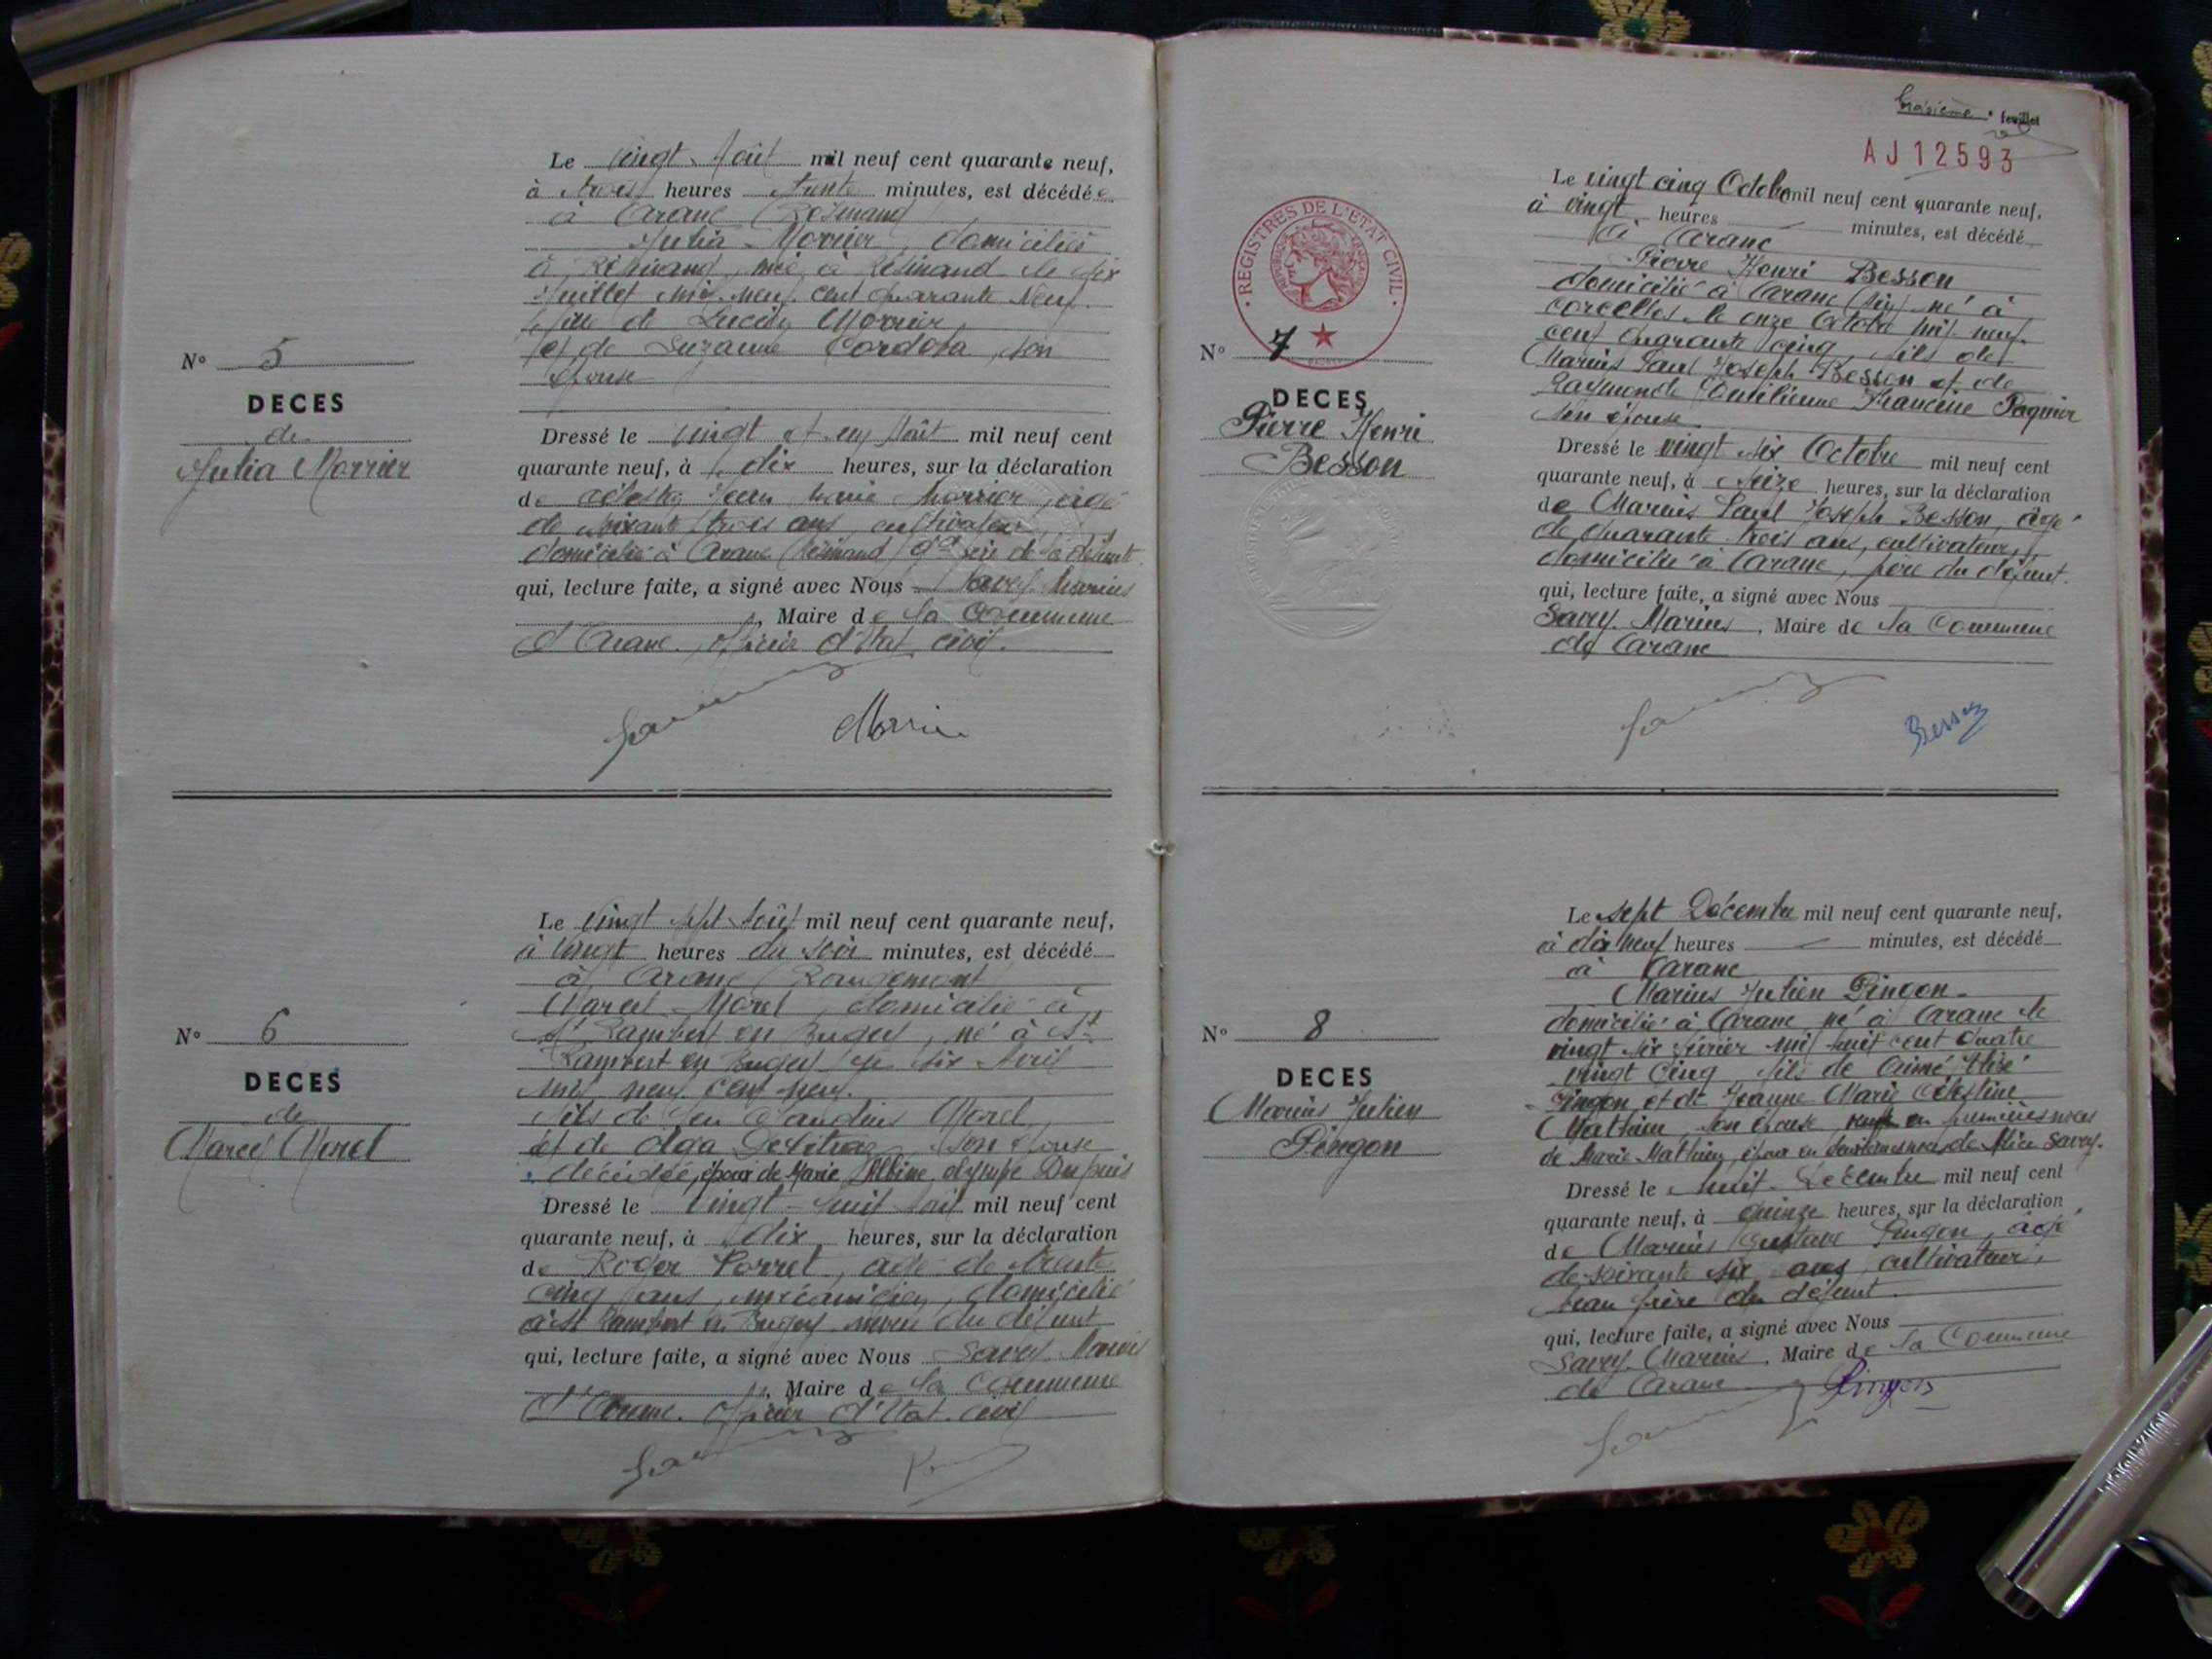 Le vingt Août mil neuf cent quarante neuf,
à trois heures trente minutes, est décédée
à Aranc (Résinand)
Julia Morrier, domiciliée
à Résinand, née à Résinand le six
Juillet mil neuf cent quarante Neuf.
fille de Lucien Morrier
et de Suzanne Cordoba, son
épouse
N° 5
DECES
de
Julia Morrier
Dressé le vingt et un Août mil neuf cent
quarante neuf, à dix heures, sur la déclaration
de Jean Marie Morrier, âgé
de soixante trois ans, cultivateur
domicilié à Aranc (Résinand) gd père de la défunte
qui, lecture faite, a signé avec Nous Savey Marius
, Maire de la Commune
d'Aranc, officier d'Etat civil.
Morrier
Le vingt sept Août mil neuf cent quarante neuf,
à vingt heures du soir minutes, est décédé
à Aranc (Rougemont)
Marcel Morel, domicilié à
St Rambert en Bugey, né à St
Rambert en Bugey le six Avril
mil neuf cent neuf.
fils de feu Claudius Morel
et de Olga, son épouse
décédée, époux de Marie Albine Olympe Dupuis
N° 6
DECES
de
Marcel Morel
Dressé le vingt-huit Août mil neuf cent
quarante neuf, à dix heures, sur la déclaration
de Roger Porret, âgé de trente
cinq ans, mécanicien, domicilié
à St Rambert en Bugey neveu du défunt
qui, lecture faite, a signé avec Nous Savey Marius
, Maire de la Commune
d'Aranc. officier d'Etat civil
troisième feuillet
AJ12593
Le vingt cinq Octobre mil neuf cent quarante neuf,
à vingt heures minutes, est décédé
à Aranc
Pierre Henri Besson
domicilié à Aranc né à
Corcelles le onze Octobre mil neuf
cent quarante cinq, fils de
Marius Paul Joseph Besson et de
Raymonde Emilienne Francine Paquier
son épouse
REGISTRES DE L'ETAT CIVIL
N° 7
DECES
Pierre Henri
Besson
Dressé le vingt six Octobre mil neuf cent
quarante neuf, à seize heures, sur la déclaration
de Marius Paul Joseph Besson, âgé
de quarante trois ans, cultivateur,
domicilié à Aranc, père du défunt.
qui, lecture faite, a signé avec Nous
Savey Marius, Maire de la Commune
de Aranc
Besson
Le sept Décembre mil neuf cent quarante neuf,
à dix neuf heures minutes, est décédé
à Aranc
Marius Julien Pingon
domicilié à Aranc né à Aranc le
vingt six février mil huit cent quatre
vingt cinq fils de Aimé
Pingon et de Jeanne Marie Célestine
Mathieu, son épouse veuf en premières noces
de Marie Mathieu, époux en deuxièmes noces de Alice Savey.
N° 8
DECES
Marius Julien
Pingon
Dressé le huit Décembre mil neuf cent
quarante neuf, à quinze heures, sur la déclaration
de Marius Gustave Pingon, âgé
de soixante six ans, cultivateur,
beau frère du défunt.
qui, lecture faite, a signé avec Nous
Savey Marius, Maire de la Commune
de Aranc
Pingon